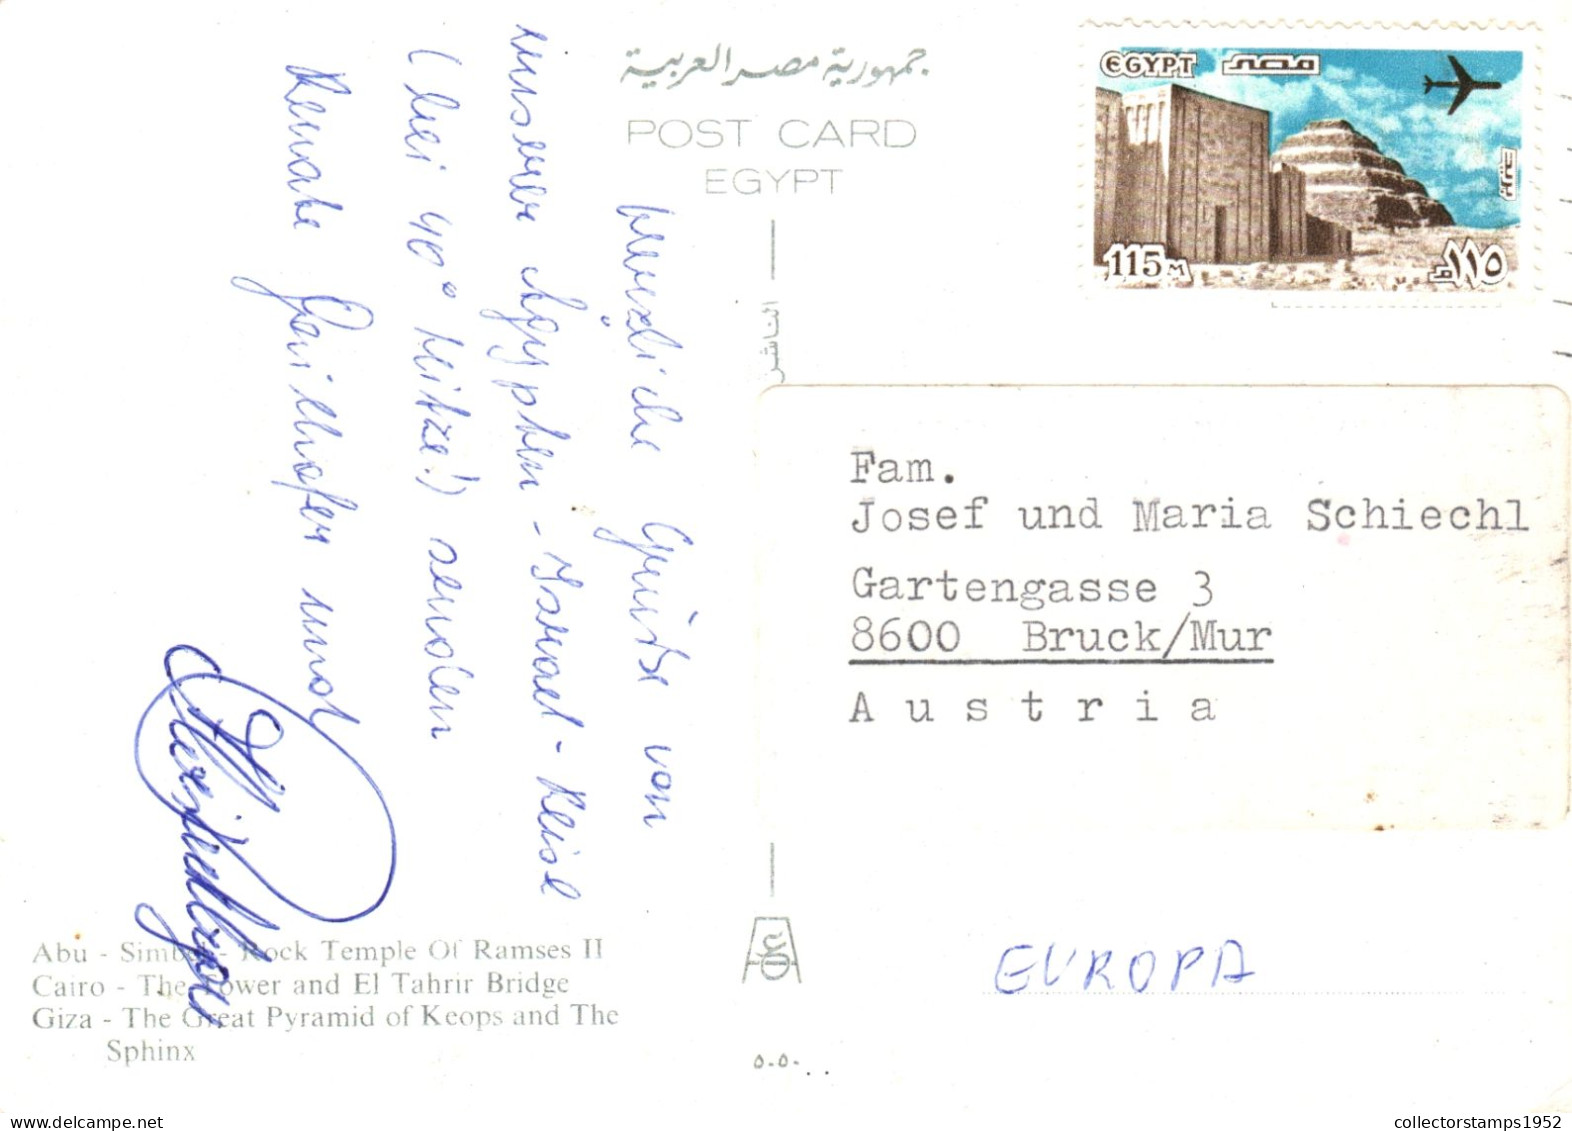 جمهورية مصر العربية
POST CARD
EGYPT
EGYPT مصر
115 M
١١٥
الناشر
Herzliche Grüße von
unserer Ägypten - Israel - Reise
(bei 40° Hitze!) senden
Renate Gaillhofer und
Fam.
Josef und Maria Schiechl
Gartengasse 3
8600 Bruck/Mur
Austria
EUROPA
Abu - Simbel - Rock Temple Of Ramses II
Cairo - The Tower and El Tahrir Bridge
Giza - The Great Pyramid of Keops and The
Sphinx
٥٠٥٠
collectorstamps1952